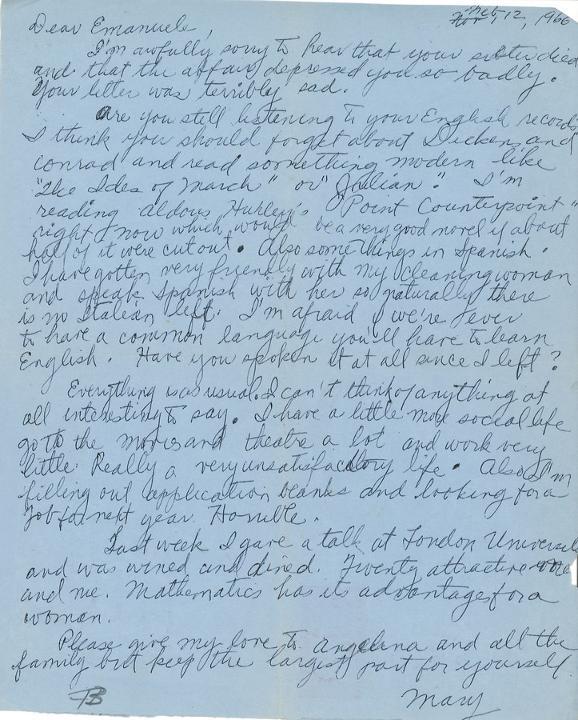 Feb. 12, 1966
Dear Emanuele,
I'm awfully sorry to hear that your sister died
and that the affair depressed you so badly.
Your letter was terribly sad.
Are you still listening to your English records
I think you should forget about Dickens and
Conrad and read something modern like
"The Ides of March" or "Julian". I'm
reading Aldous Huxley's "Point Counterpoint"
right now which would be a very good novel if about
half of it were cut out. Also some things in Spanish.
I have gotten very friendly with my cleaning woman
and speak Spanish with her so naturally there
is no Italian left. I'm afraid if we're ever
to have a common language you'll have to learn
English. Have you spoken it at all since I left?
Everything was usual. I can't think of anything at
all interesting to say. I have a little more social life
go to the movies and theatre a lot and work very
little. Really a very unsatisfactory life. Also I'm
filling out application blanks and looking for a
job for next year. Horrible.
Last week I gave a talk at London Universi
and was wined and dined. Twenty attractive
and me. Mathematics has its advantages for a
woman.
Please give my love to Angelina and all the
family but keep the largest part for yourself
Mary